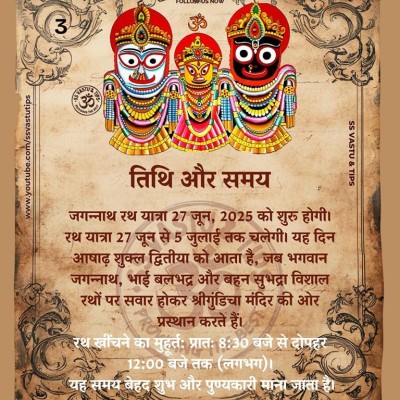 FOLLOW US NOW
3
ॐ
www.youtube.com/ssvastutips
SS VASTU & TIPS
तिथि और समय
जगन्नाथ रथ यात्रा 27 जून, 2025 को शुरु होगी।
रथ यात्रा 27 जून से 5 जुलाई तक चलेगी। यह दिन
आषाढ़ शुक्ल द्वितीया को आता है, जब भगवान
जगन्नाथ, भाई बलभद्र और बहन सुभद्रा विशाल
रथों पर सवार होकर श्रीगुंडिचा मंदिर की ओर
प्रस्थान करते हैं।
रथ खींचने का मुहूर्त: प्रातः 8:30 बजे से दोपहर
12:00 बजे तक (लगभग)।
यह समय बेहद शुभ और पुण्यकारी माना जाता है।